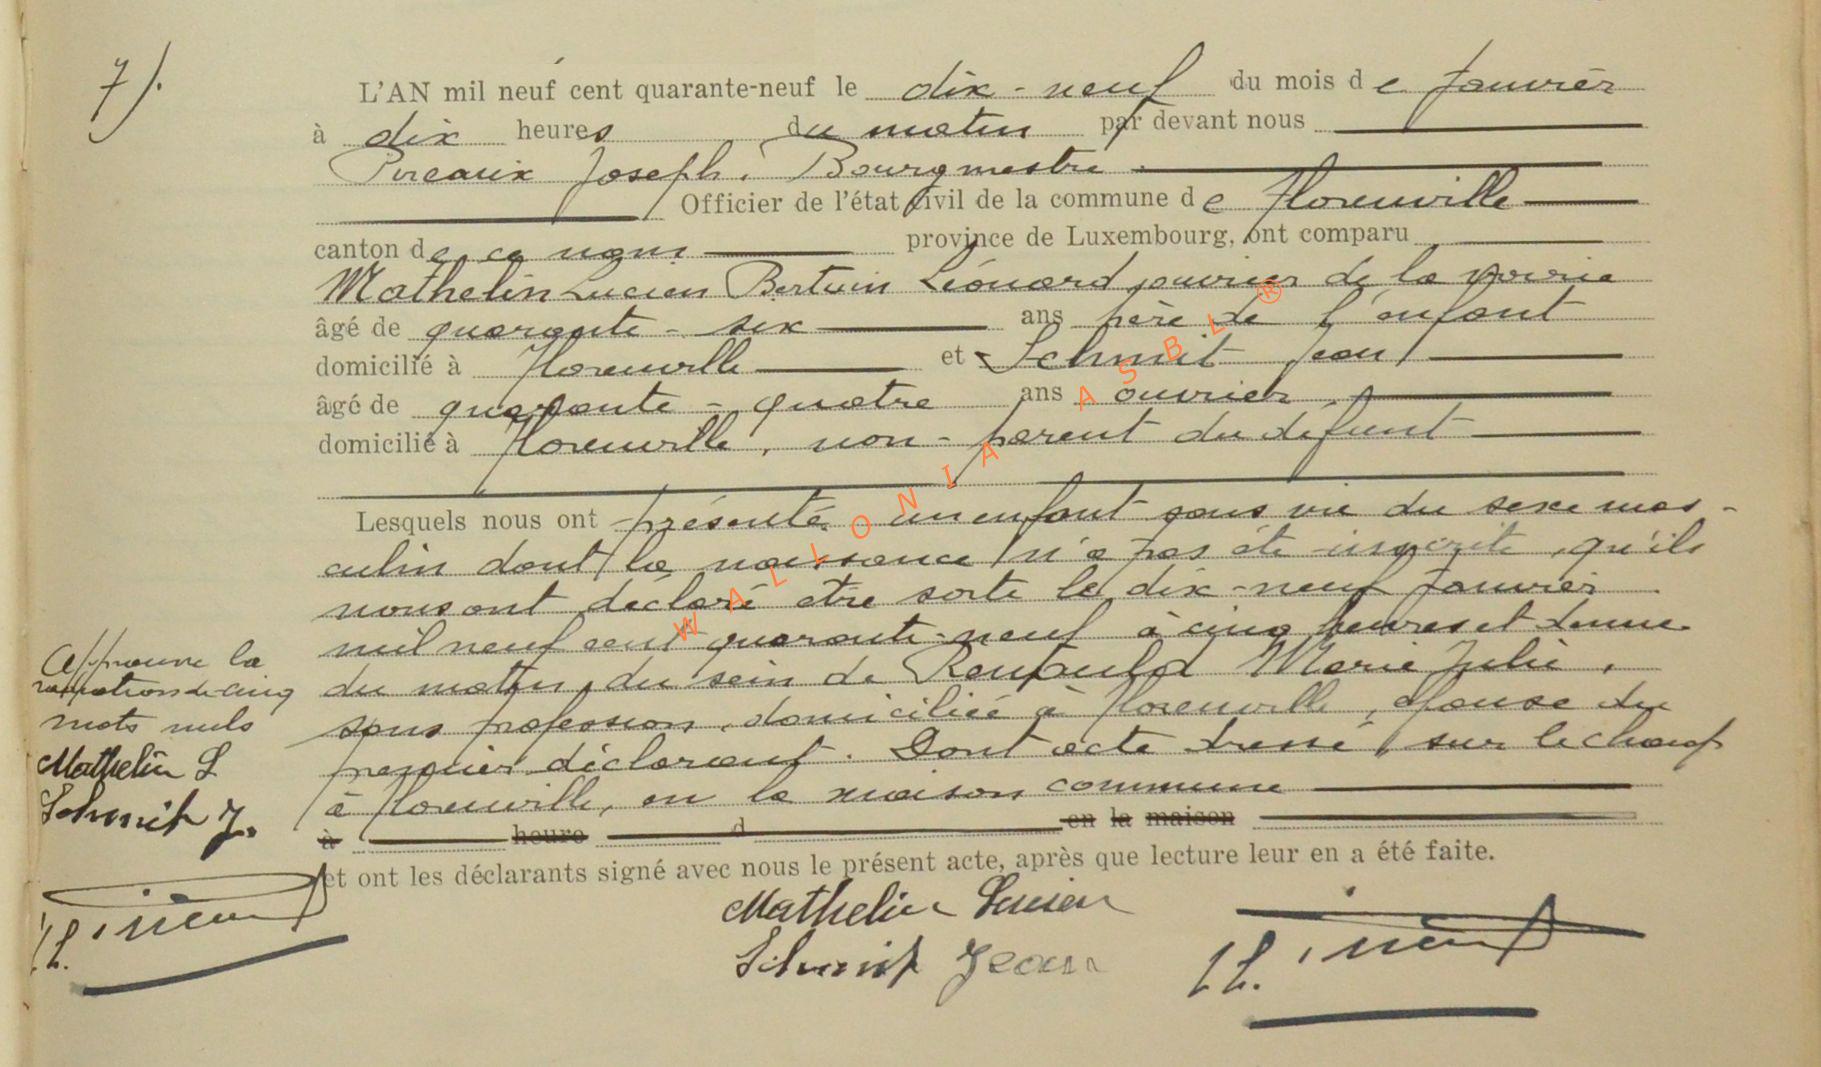 7).
L'AN mil neuf cent quarante-neuf le dix-neuf du mois de Janvier
à dix heures du matin par devant nous
Pireaux Joseph, Bourgmestre
Officier de l'état civil de la commune de Florenville
canton de ce nom province de Luxembourg, ont comparu
Mathelin Lucien Bertuin Léonard, ouvrier de la voirie
âgé de quarante-six ans père de l'enfant
domicilié à Florenville et Schmit Jean
âgé de quarante-quatre ans ouvrier,
domicilié à Florenville, non-parent du défunt
Lesquels nous ont présenté un enfant sans vie du sexe mas-
culin dont la naissance n'a pas été inscrite, qu'ils
nous ont déclaré être sorti le dix-neuf Janvier
mil neuf cent quarante-neuf à cinq heures et demie
du matin, du sein de Marie Julie,
sans profession, domiciliée à Florenville, épouse du
premier déclarant. Dont acte dressé, sur le champ
à Florenville, en la maison commune
à heure d en la maison
et ont les déclarants signé avec nous le présent acte, après que lecture leur en a été faite.
Mathelin Lucien
Schmit Jean
Approuvé la
radiation de cinq
mots nuls
Mathelin L
Schmit J.
WALLONIA ASBL ®